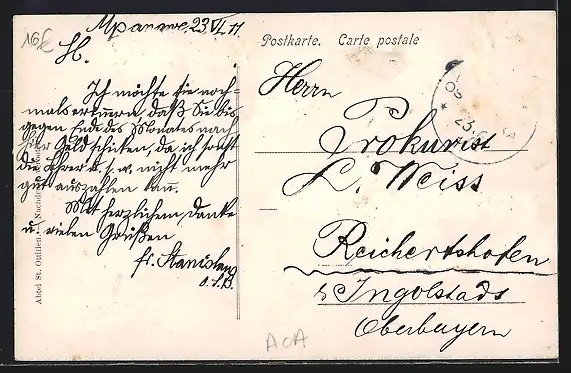 16£
Mpanwe, 23.VI.11
H.
Ich möchte Sie noch-
mals erinnern, daß Sie bis
gegen Ende des Monates nach
hier Geld schicken, da ich sonst
die Lehrer u.s.w. nicht mehr
gut auszahlen kan.
Mit herzlichem Danke
u. vielen Grüßen
fr. Stanislaus
O.S.B.
Abtei St. Ottilien. Nachdruck
Postkarte. Carte postale
Herrn
Prokurist
L. Weiss
Reichertshofen
b Ingolstads
Oberbayern
* 23.6
AOA